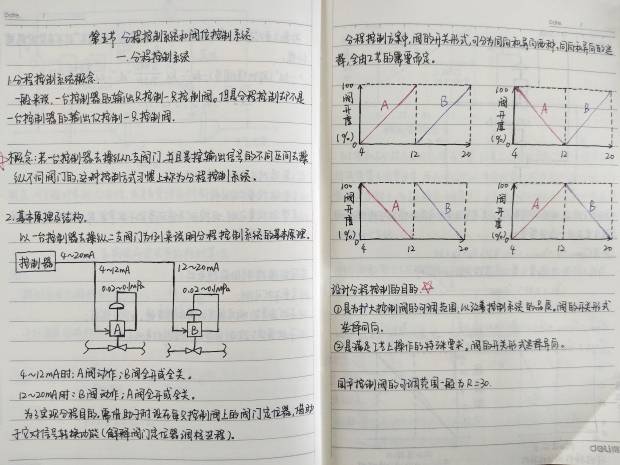 第五节 分程控制系统和阀位控制系统
一.分程控制系统
1.分程控制系统概念.
一般来说,一台控制器的输出只控制一只控制阀。但是分程控制却不是
一台控制器的输出仅控制一只控制阀.
概念:若一台控制器去操纵几支阀门,并且是按输出信号的不同区间去操
纵不同阀门的,这种控制方式习惯上称为分程控制系统。
2.基本原理及结构.
以一台控制器去操纵二支阀门为例来说明分程控制系统的基本原理.
控制器
4~20mA
4~12mA
12~20mA
0.02~0.1MPa
0.02~0.1MPa
A
B
4~12mA时:A阀动作;B阀全开或全关.
12~20mA时:B阀动作;A阀全开或全关.
为了实现分程目的,需借助于附设在每只控制阀上的阀门定位器,借助
于它对信号转换功能(解释阀门定位器调校过程).
分程控制方案中,阀的开关形式,可分为同向和异向两种,同向和异向的选
择,全由工艺的需要而定。
100
阀开度(%)
0
A
B
4
12
20
100
阀开度(%)
0
A
B
4
12
20
100
阀开度(%)
0
A
B
4
12
20
100
阀开度(%)
0
A
B
4
12
20
设计分程控制的目的
①是为扩大控制阀的可调范围,以改善控制系统的品质。阀的开关形式
选择同向.
②是满足工艺上操作的特殊要求。阀的开关形式选择异向。
国产控制阀的可调范围一般为R=30.